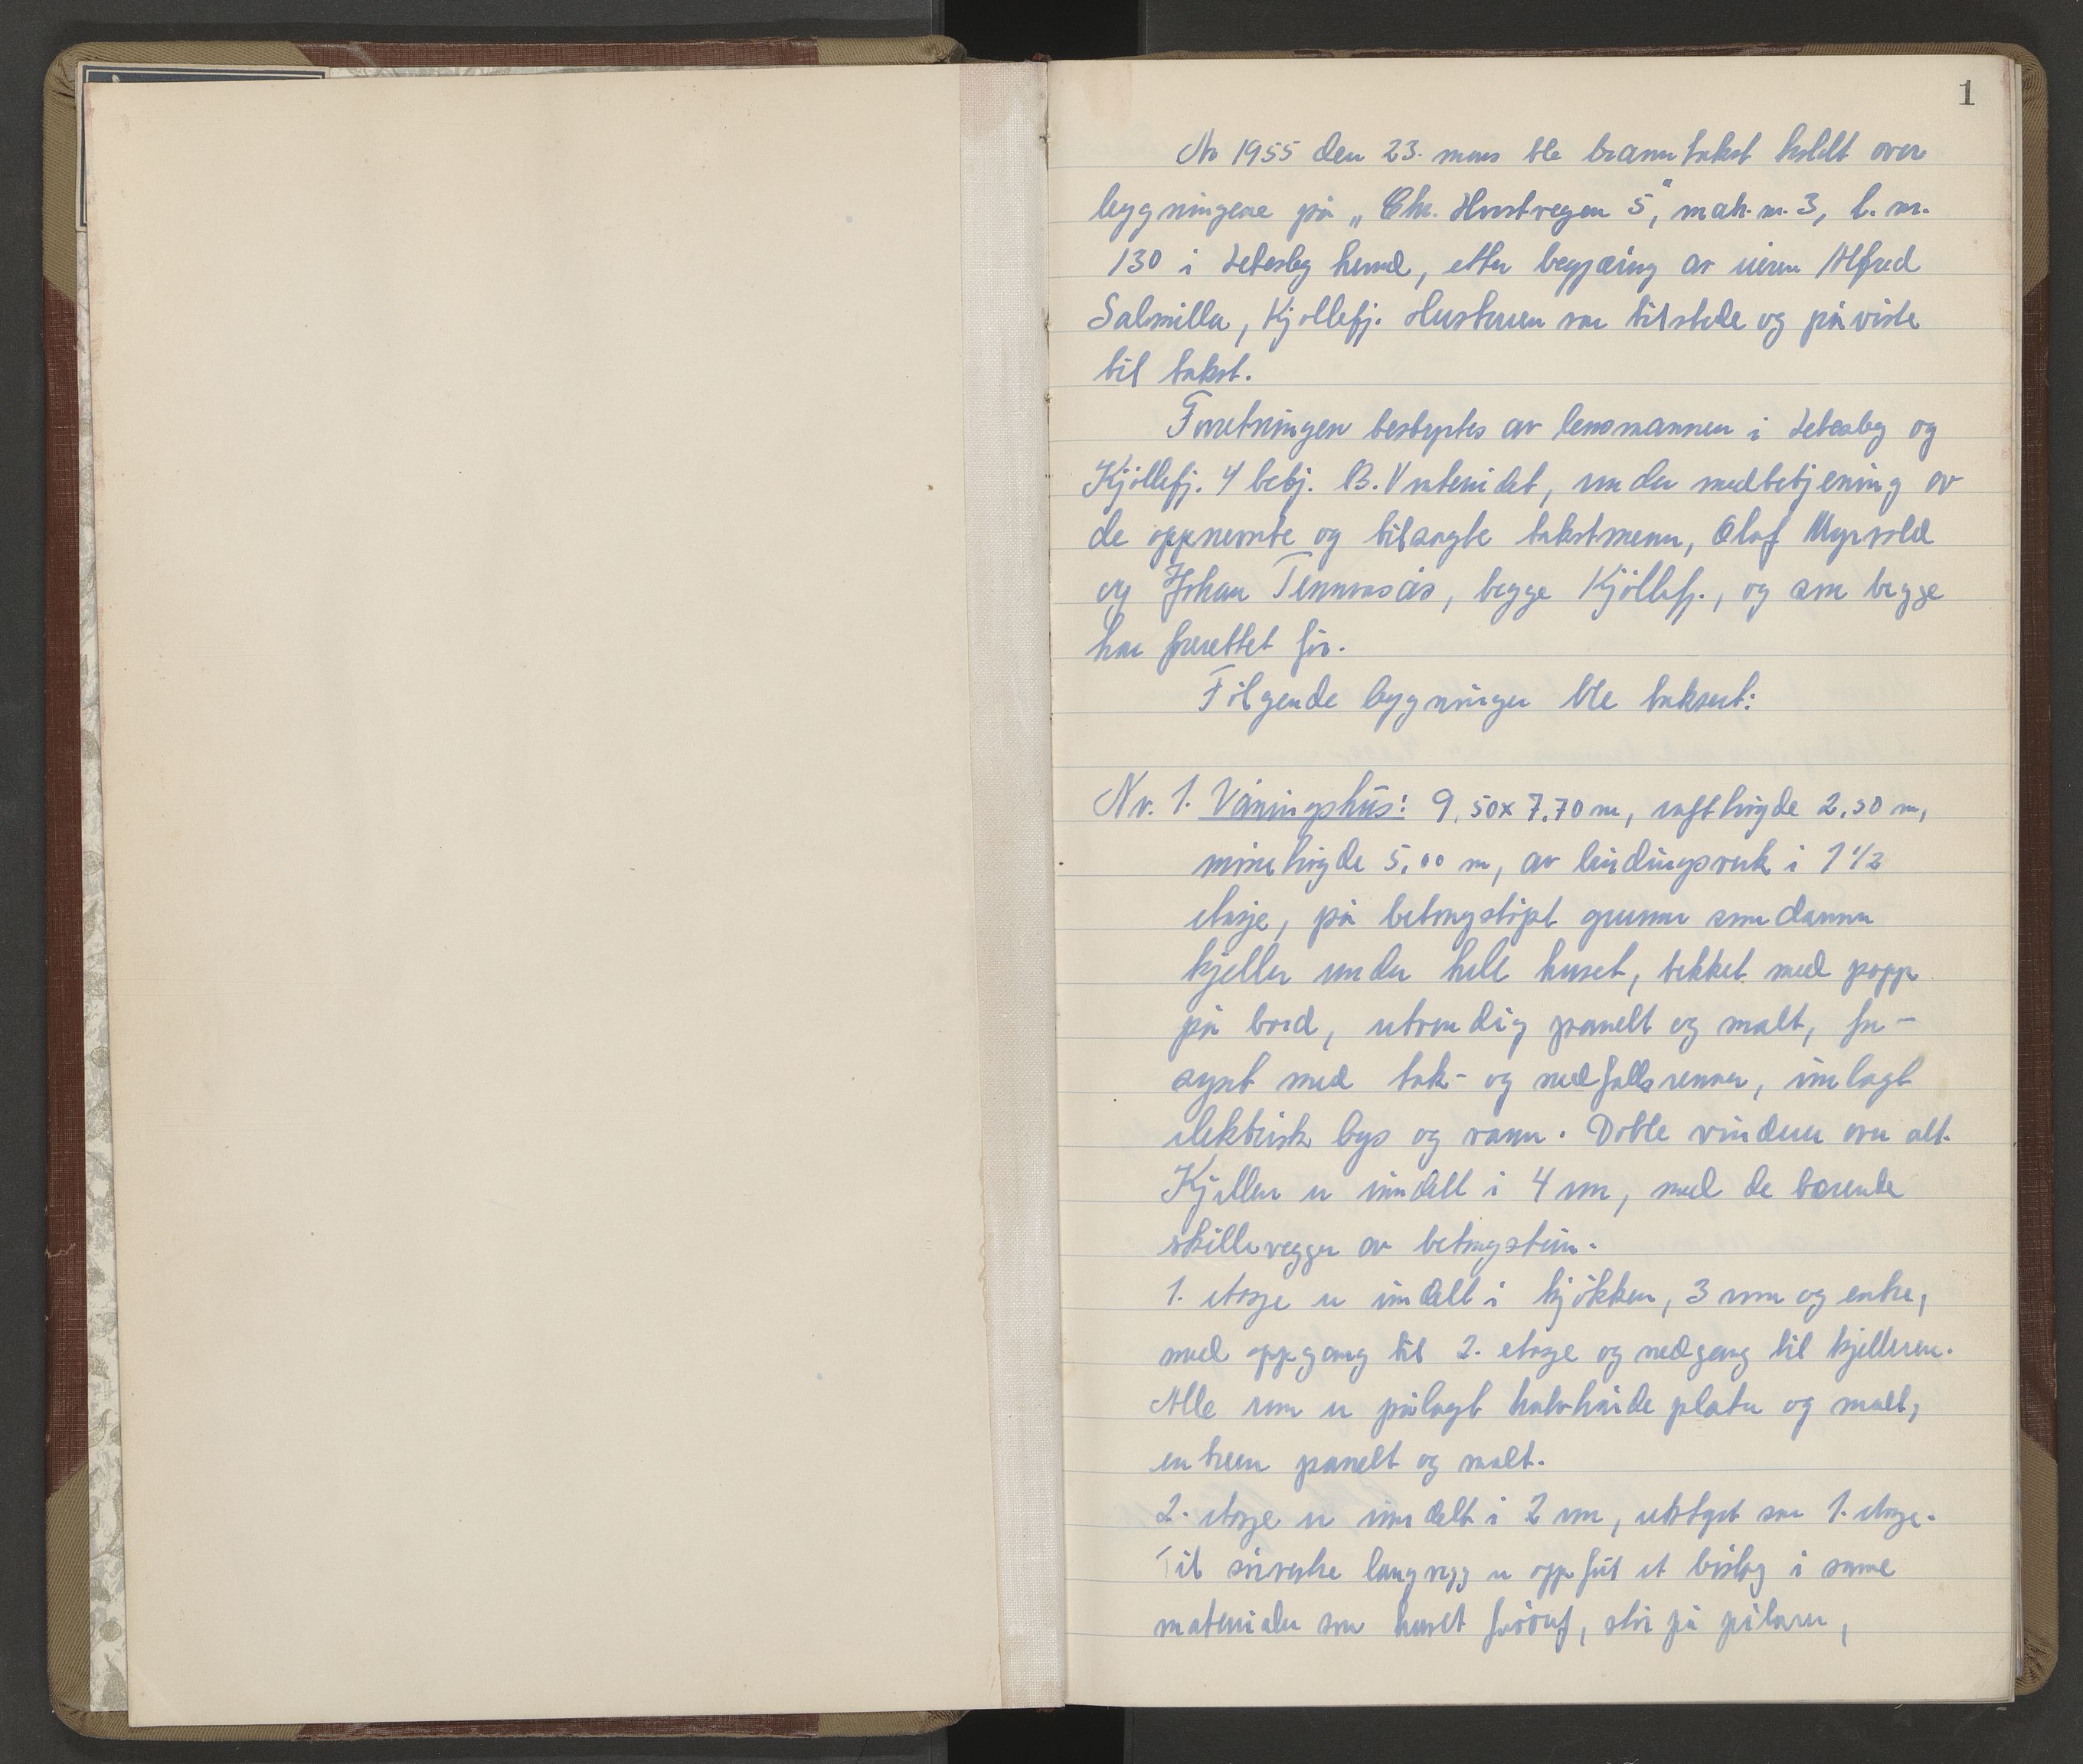 1
År 1955 den 23. mars ble branntakst holdt over
bygningene på „Chr. Hustvegen 5", matr. nr. 3, l. nr.
130 i Lebesby herred, etter begjæring av eieren Alfred
Salmilla, Kjøllefj. Hustruen var tilstede og påviste
til takst.
Forretningen bestyrtes av lensmannen i Lebesby og
Kjøllefj. 4 betj. B. under medbetjening av
de oppnevnte og tilsagte takstmenn, Olaf Myrvold
og Johan begge Kjøllefj., og som begge
har forrettet før.
Følgende bygninger ble taksert:
Nr. 1. Våningshus: 9,50x7,70 m, rafthøgde 2,50 m,
mønehøgde 5,00 m, av bindingsverk i 1 1/2
etasje, på betongstøpt grunn som danner
kjeller under hele huset, tekket med papp
på bord, utvendig panelt og malt, for-
synt med tak- og nedfallsrenner, innlagt
elektrisk lys og vann. Doble vinduer over alt.
Kjeller er inndelt i 4 rom, med de bærende
skillevegger av betongstein.
1. etasje er inndelt i kjøkken, 3 rom og entre,
med oppgang til 2. etasje og nedgang til kjelleren.
Alle rom er pålagt halvhårde plater og malt,
entreen panelt og malt.
2. etasje er inndelt i 2 rom, utstyrt som 1. etasje.
Til langvegg er oppført et bislag i samme
materialer som huset forøvrig, står på pilarer,